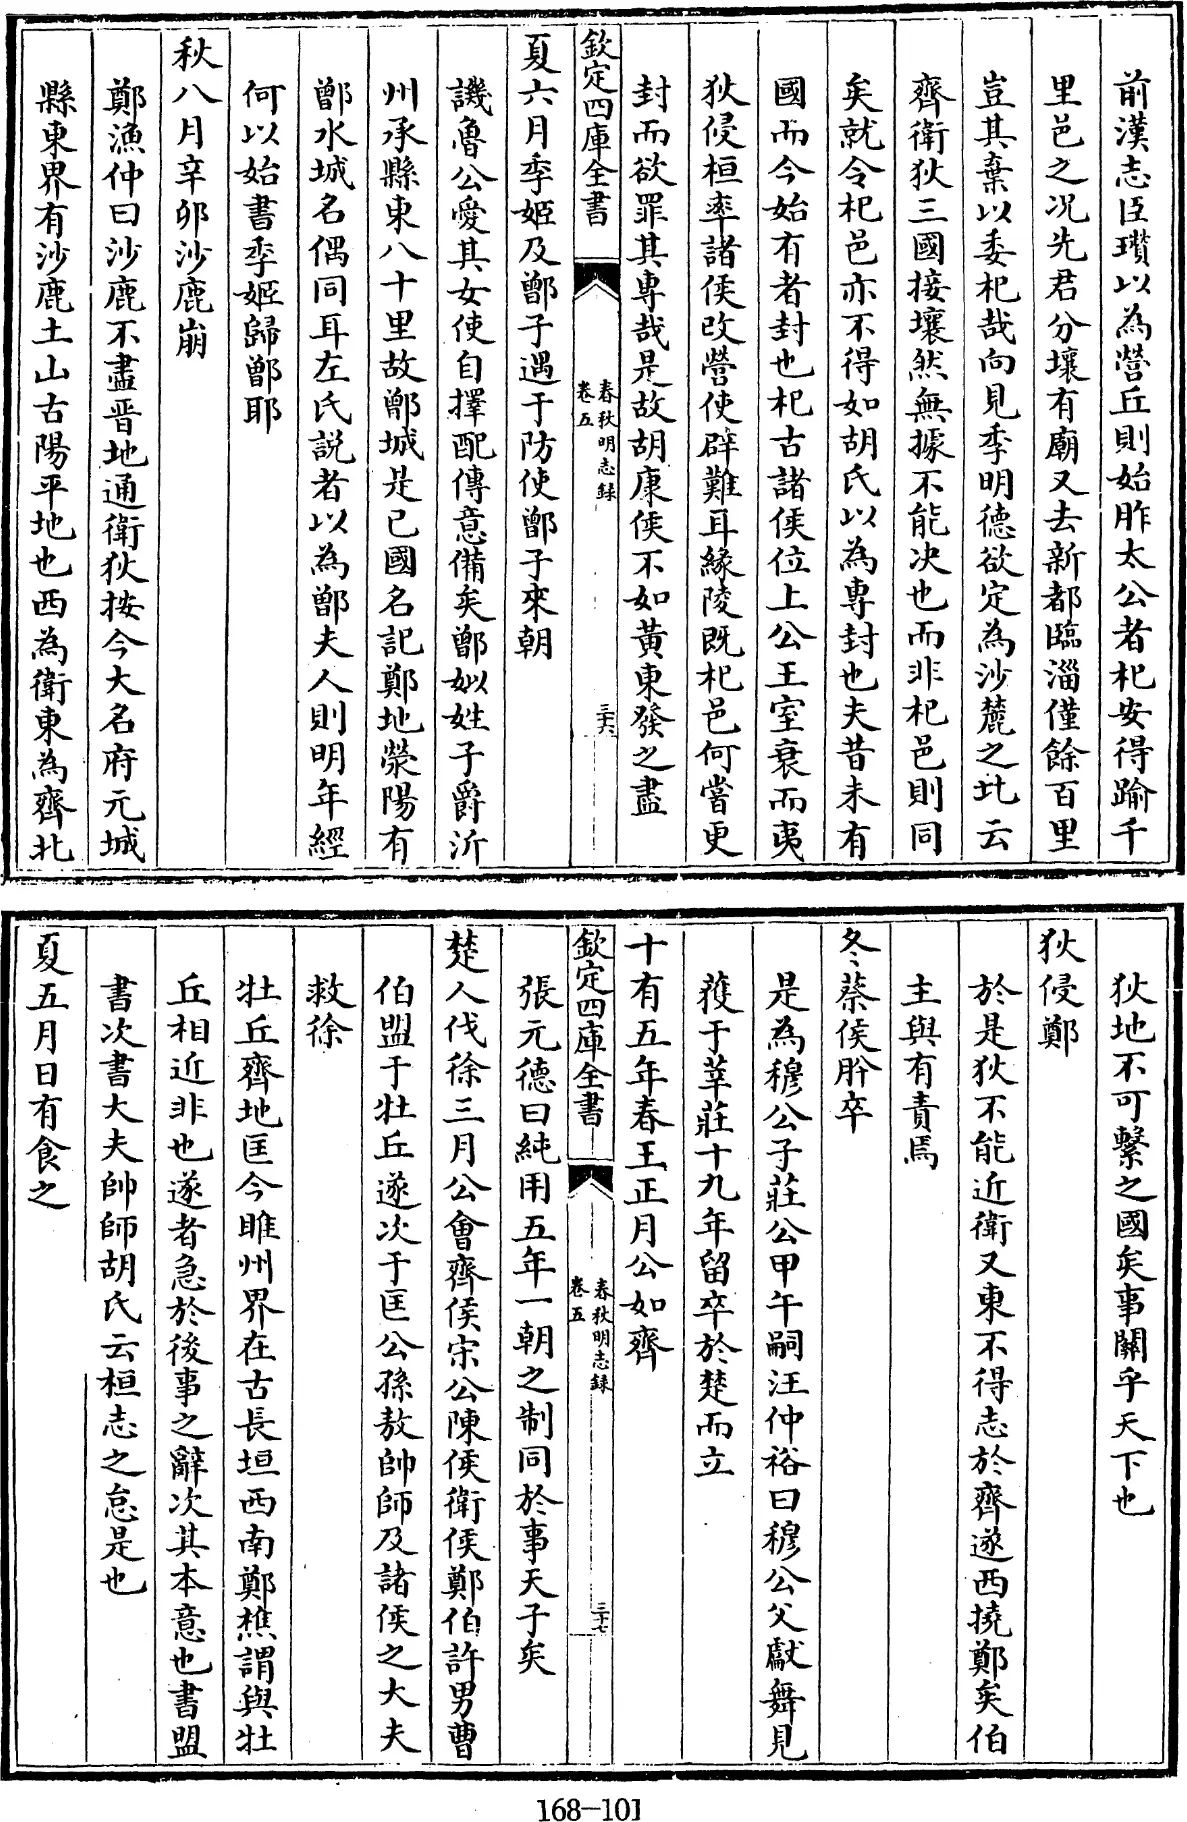 前漢志臣瓚以為營丘則始胙太公者杞安得踰千
里邑之况先君分壤有廟又去新都臨淄僅餘百里
豈其棄以委杞哉向見季明德欲定為沙麓之圠云
齊衛狄三國接壤然無據不能决也而非杞邑則同
矣就令杞邑亦不得如胡氏以為專封也夫昔未有
國而今始有者封也杞古諸侯位上公王室衰而夷
狄侵桓率諸侯改營使辟難耳緣陵既杞邑何嘗更
封而欲罪其專哉是故胡康侯不如黄東發之盡
欽定四庫全書
春秋明志録
卷五
三十六
夏六月季姬及鄫子遇于防使鄫子來朝
譏魯公愛其女使自擇配傳意備矣鄫姒姓子爵沂
州承縣東八十里故鄫城是已國名記鄭地滎陽有
鄫水城名偶同耳左氏説者以為鄫夫人則明年經
何以始書季姬歸鄫耶
秋八月辛卯沙鹿崩
鄭漁仲曰沙鹿不盡晋地通衛狄按今大名府元城
縣東界有沙鹿土山古陽平地也西為衛東為齊北
狄地不可繫之國矣事關乎天下也
狄侵鄭
於是狄不能近衛又東不得志於齊遂西撓鄭矣伯
主與有責焉
冬蔡侯肸卒
是為穆公子莊公甲午嗣汪仲裕曰穆公父獻舞見
獲于莘莊十九年留卒於楚而立
十有五年春王正月公如齊
欽定四庫全書
春秋明志録
卷五
三十七
張元德曰純用五年一朝之制同於事天子矣
楚人伐徐三月公會齊侯宋公陳侯衛侯鄭伯許男曹
伯盟于牡丘遂次于匡公孫敖帥師及諸侯之大夫
救徐
牡丘齊地匡今睢州界在古長垣西南鄭樵謂與牡
丘相近非也遂者急於後事之辭次其本意也書盟
書次書大夫帥師胡氏云桓志之怠是也
夏五月日有食之
168-101